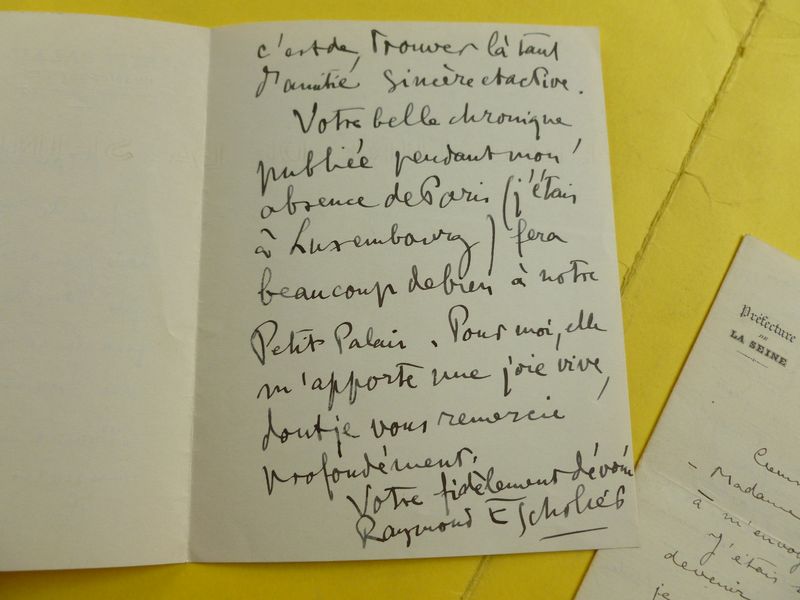 c'est de trouver là tant
d'amitié sincère et active.
Votre belle chronique
publiée pendant mon
absence de Paris (j'étais
à Luxembourg) fera
beaucoup de bien à notre
Petit Palais. Pour moi, elle
m'apporte une joie vive,
dont je vous remercie
profondément.
Votre fidèlement dévoué
Raymond Escholier
Préfecture
DE
LA SEINE
- Madame
à m'envoy
J'étais
devenir
je